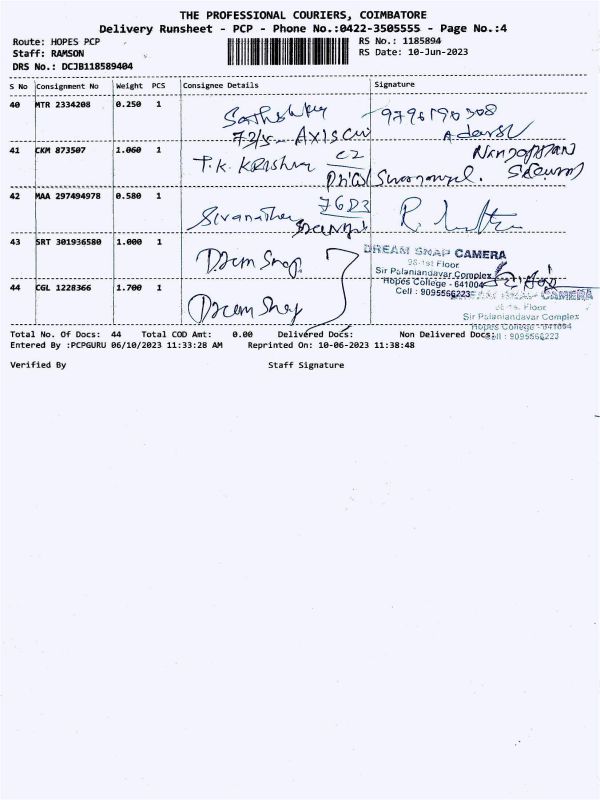 THE PROFESSIONAL COURIERS, COIMBATORE
Delivery Runsheet - PCP - Phone No.:0422-3505555 - Page No.:4
Route: HOPES PCP
Staff: RAMSON
DRS No.: DCJB118589404
RS No.: 1185894
RS Date: 10-Jun-2023
S No Consignment No Weight PCS Consignee Details Signature
40 MTR 2334208 0.250 1
Axis
41 CKM 873507 1.060 1 T.K. Krishna C2
42 MAA 297494978 0.580 1 76D3
43 SRT 301936580 1.000 1 Dream Snap
DREAM SNAP CAMERA
1st Floor
Sir Palaniandavar Complex
Hopes College - 641004
Cell : 9095566223
44 CGL 1228366 1.700 1 Dream Snap
DREAM SNAP CAMERA
1st Floor
Sir Palaniandavar Complex
Hopes College - 641004
Cell : 9095566223
Total No. Of Docs: 44 Total COD Amt: 0.00 Delivered Docs: Non Delivered Docs:
Entered By :PCPGURU 06/10/2023 11:33:28 AM Reprinted On: 10-06-2023 11:38:48
Verified By Staff Signature